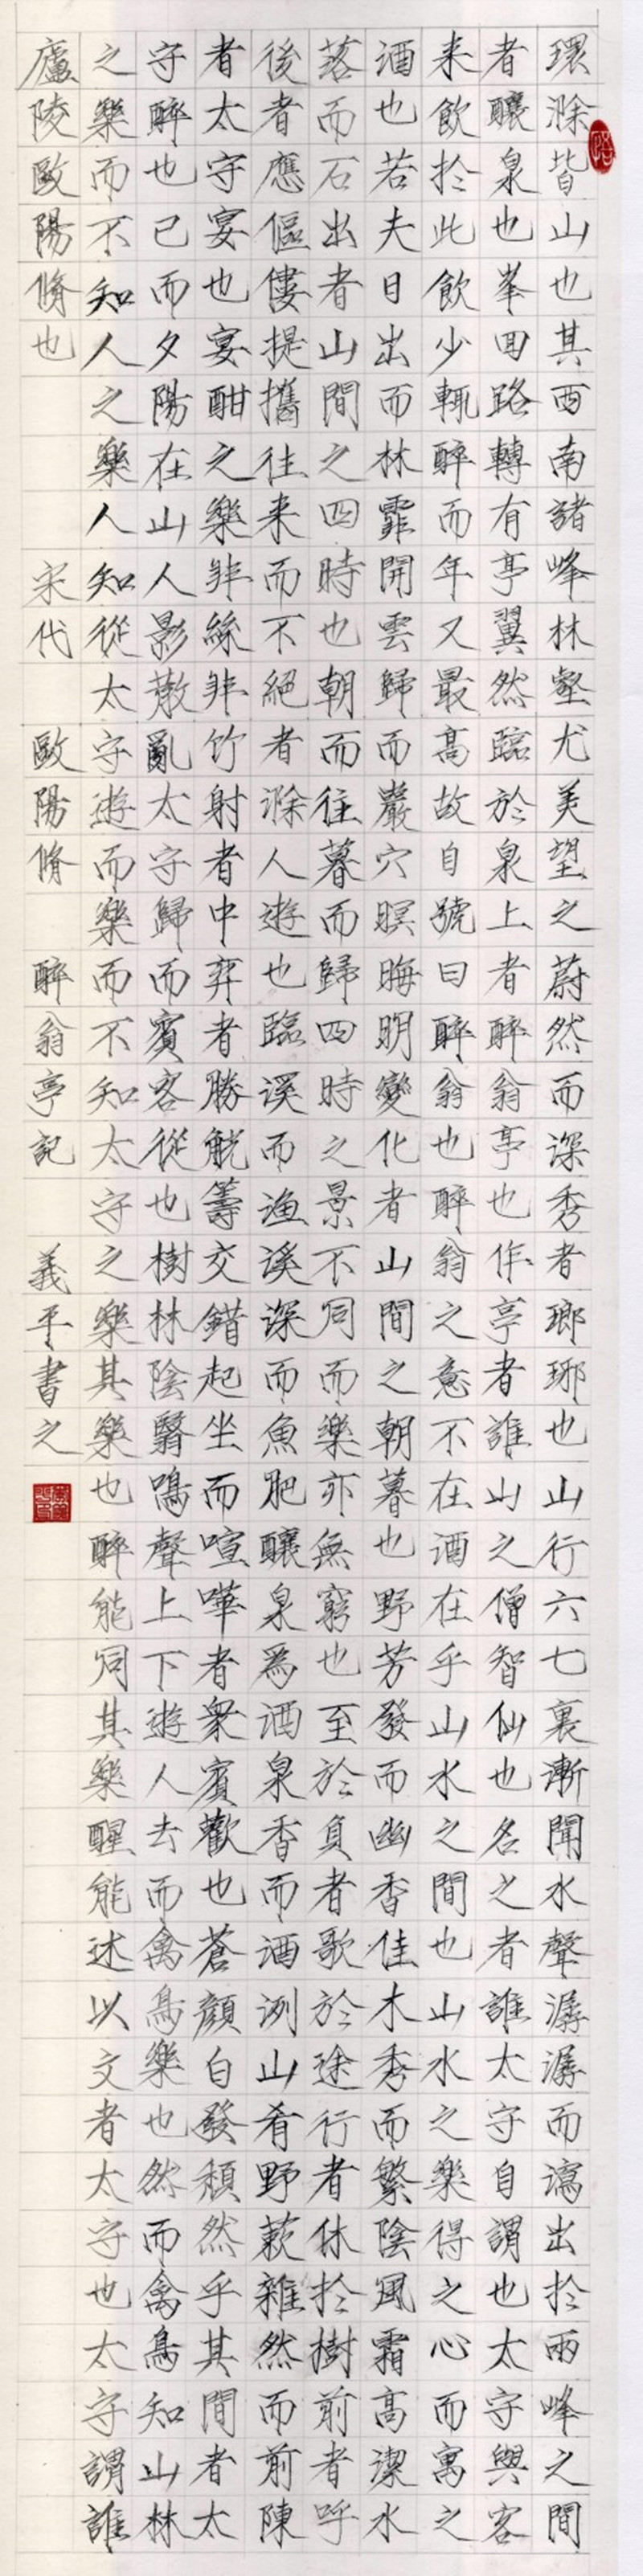 環滁皆山也其西南諸峰林壑尤美望之蔚然而深秀者瑯琊也山行六七裏漸聞水聲潺潺而瀉出於兩峰之間
者釀泉也峯回路轉有亭翼然臨於泉上者醉翁亭也作亭者誰山之僧智仙也名之者誰太守自謂也太守與客
来飲於此飲少輒醉而年又最高故自號曰醉翁也醉翁之意不在酒在乎山水之間也山水之樂得之心而寓之
酒也若夫日出而林霏開雲歸而巖穴暝晦明變化者山間之朝暮也野芳發而幽香佳木秀而繁陰風霜高潔水
落而石出者山間之四時也朝而往暮而歸四時之景不同而樂亦無窮也至於負者歌於途行者休於樹前者呼
後者應傴僂提攜往来而不絕者滁人遊也臨溪而漁溪深而魚肥釀泉爲酒泉香而酒洌山肴野蔌雜然而前陳
者太守宴也宴酣之樂非絲非竹射者中弈者勝觥籌交錯起坐而喧嘩者衆賓歡也蒼顏白發頹然乎其間者太
守醉也已而夕陽在山人影散亂太守歸而賓客從也樹林陰翳鳴聲上下遊人去而禽鳥樂也然而禽鳥知山林
之樂而不知人之樂人知從太守遊而樂而不知太守之樂其樂也醉能同其樂醒能述以文者太守也太守謂誰
廬陵歐陽脩也 宋代 歐陽脩 醉翁亭記 義平書之